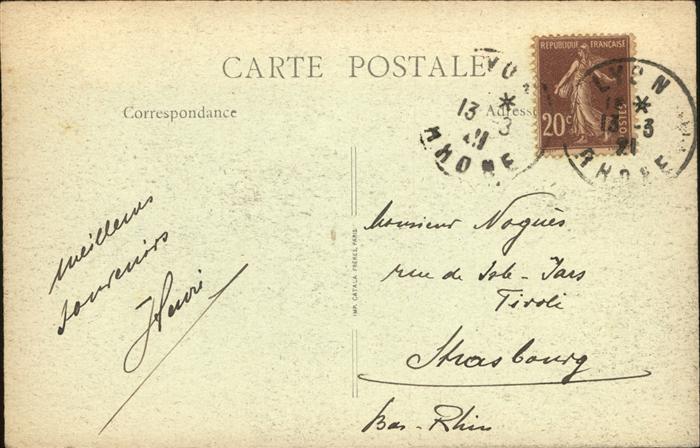 CARTE POSTALE
Correspondance
Adresse
REPUBLIQUE FRANÇAISE
20c
POSTES
LYON
13 -3
21
RHONE
LYON
13 -3
21
RHONE
meilleurs
souvenirs
IMP. CATALA FRÈRES, PARIS
Monsieur Noguès
rue de
Tivoli
Strasbourg
Bas-Rhin